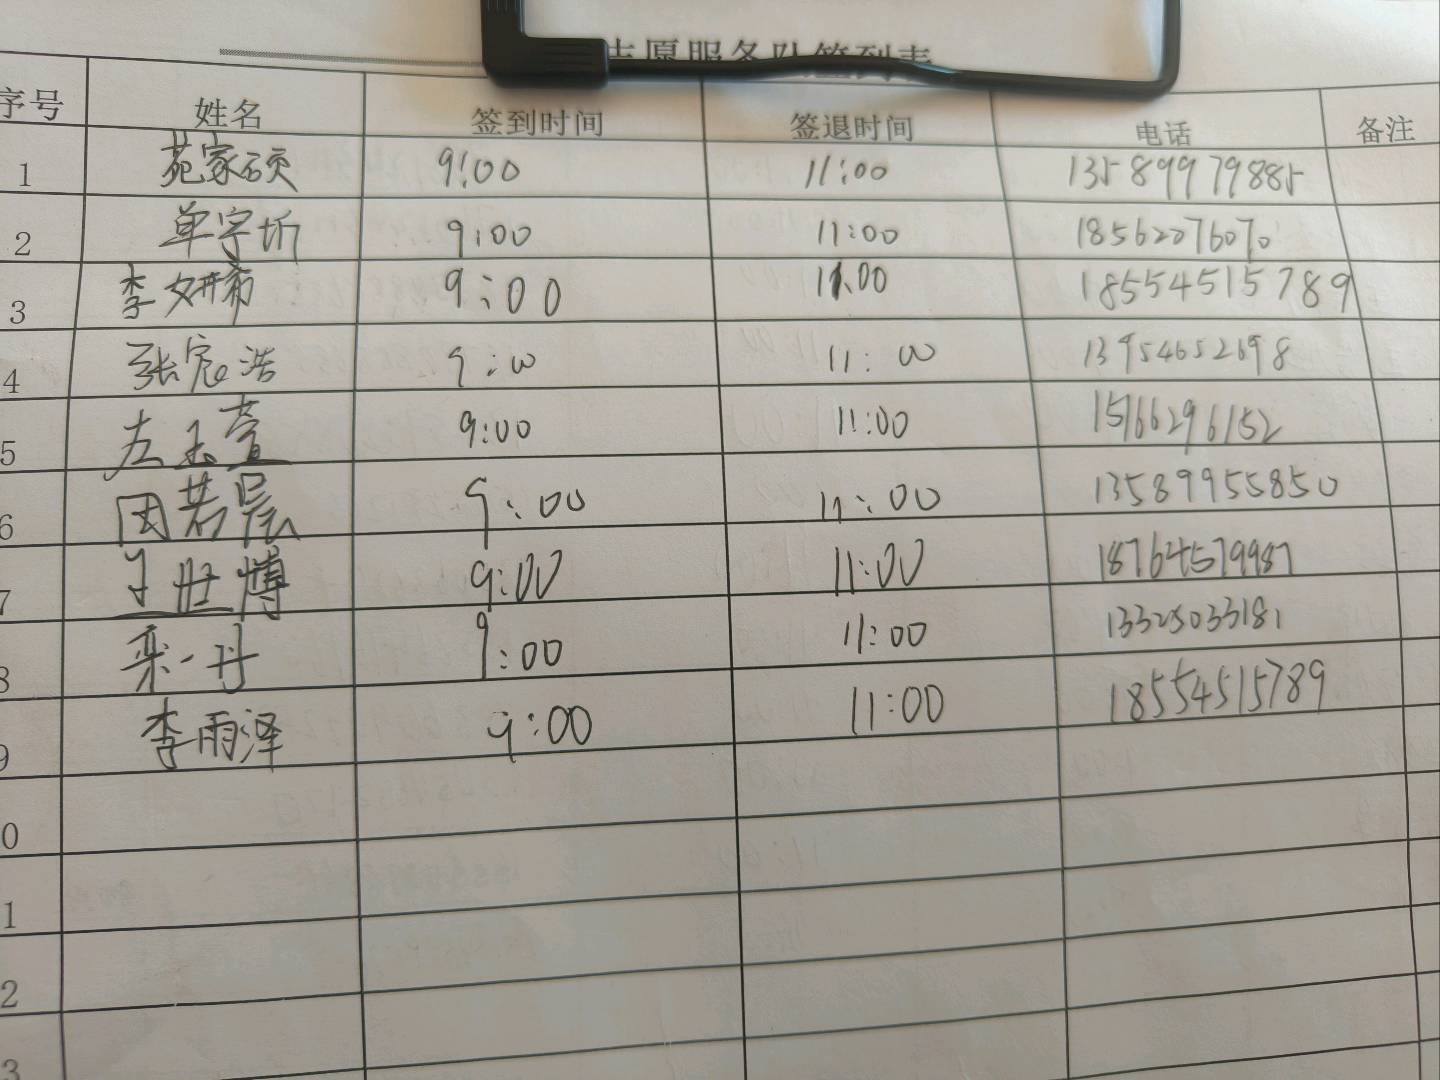 志愿服务队签到表
序号 姓名 签到时间 签退时间 电话 备注
1 苑家硕 9:00 11:00 13589979885
2 单宇圻 9:00 11:00 18562076070
3 李妍希 9:00 11:00 18554515789
4 张宸浩 9:00 11:00 13954652698
5 左玉萱 9:00 11:00 15166296152
6 田若晨 9:00 11:00 13589955850
7 于世博 9:00 11:00 18764579987
8 栾一丹 9:00 11:00 13325033181
9 李雨泽 9:00 11:00 18554515789
0
1
2
3